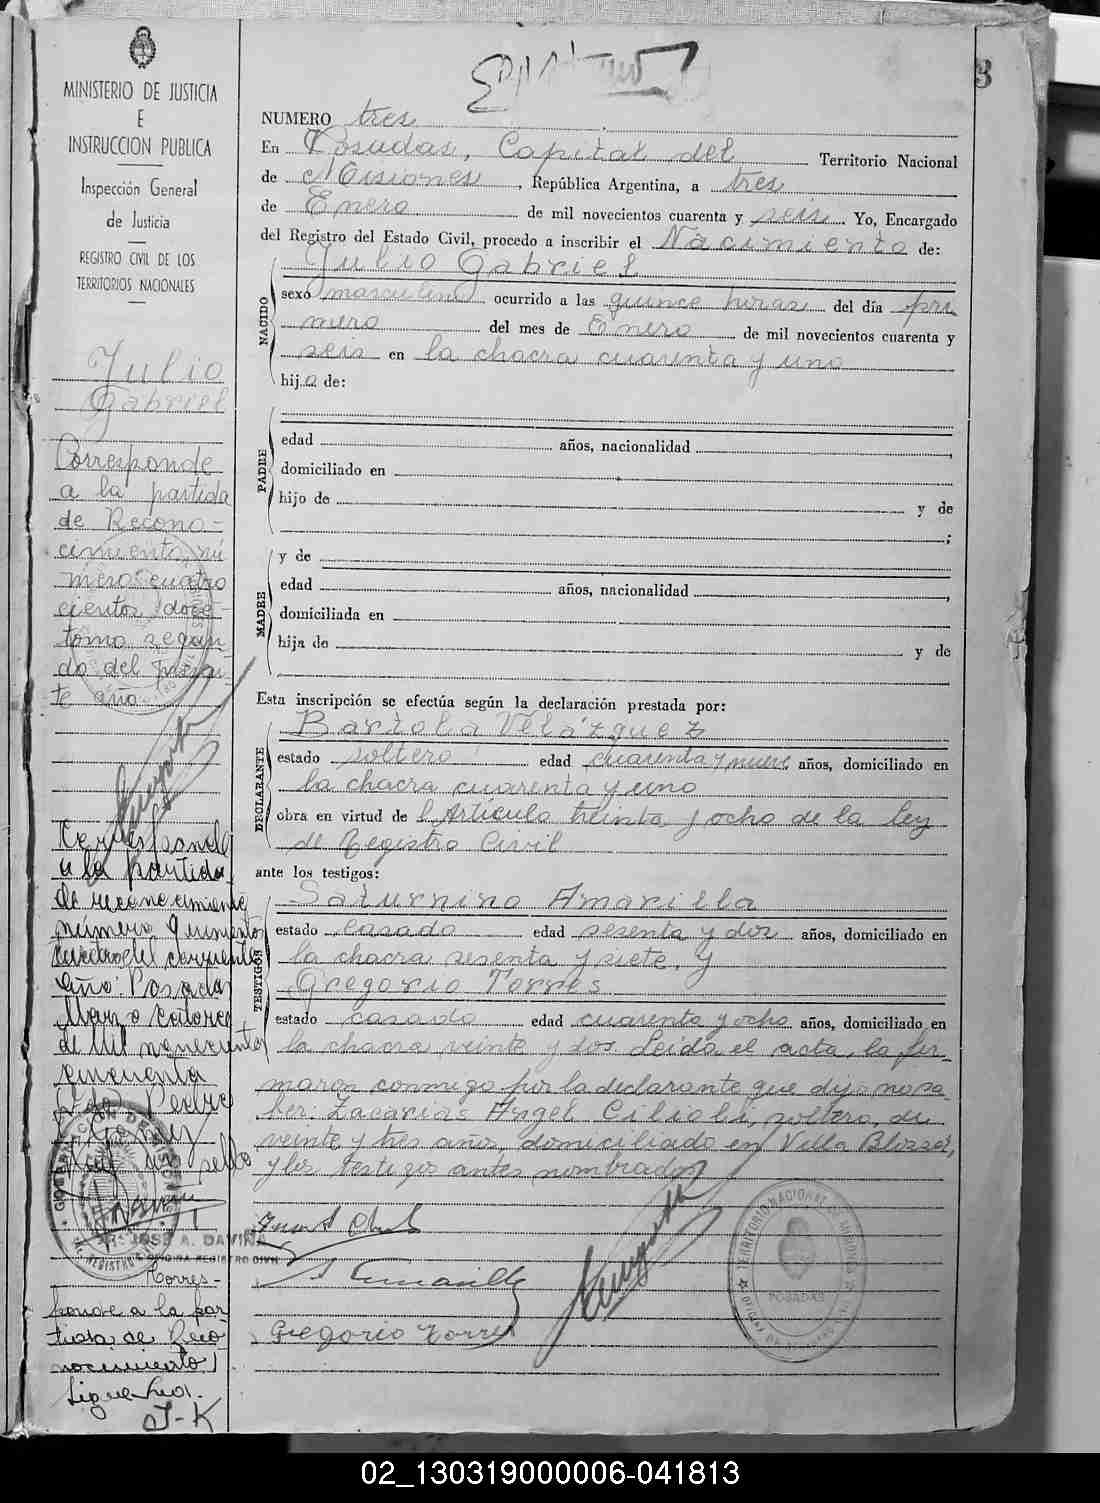 MINISTERIO DE JUSTICIA
E
INSTRUCCION PUBLICA
Inspección General
de Justicia
REGISTRO CIVIL DE LOS
TERRITORIOS NACIONALES
Julio
Gabriel
Corresponde
a la partida
de Recono-
cimiento nú
mero cuatro
cientos doce
tomo segun
do del presen-
te año
Corresponde
a la partida
de reconocimiento
número quinientos
del corriente
año. Posadas
Marzo catorce
de mil novecientos
cincuenta
sello
JOSÉ A. DAVIÑA
OFICINA REGISTRO CIVIL
Corres-
ponde a la par
tida de Reco
nocimiento
Sigue hoj.
J-K
3
NUMERO tres
En Posadas, Capital del Territorio Nacional
de Misiones, República Argentina, a tres
de Enero de mil novecientos cuarenta y seis Yo, Encargado
del Registro del Estado Civil, procedo a inscribir el Nacimiento de:
NACIDO
Julio Gabriel
sexo masculino ocurrido a las quince horas del día pri
mero del mes de Enero de mil novecientos cuarenta y
seis en la chacra cuarenta y uno
hijo de:
PADRE
edad años, nacionalidad ,
domiciliado en
hijo de y de
;
MADRE
y de
edad años, nacionalidad ,
domiciliada en
hija de y de
Esta inscripción se efectúa según la declaración prestada por:
DECLARANTE
Bartola Velázquez
estado soltera edad cuarenta y nueve años, domiciliado en
la chacra cuarenta y uno
obra en virtud de l Artículo treinta y ocho de la ley
de Registro Civil
ante los testigos:
TESTIGOS
Saturnino Amarilla
estado casado edad sesenta y dos años, domiciliado en
la chacra sesenta y siete, y
Gregorio Torres
estado casado edad cuarenta y ocho años, domiciliado en
la chacra veinte y dos. Leída el acta, la fir
maron conmigo por la declarante que dijo no sa
ber: Zacarías Angel soltero, de
veinte y tres años, domiciliado en Villa Blosset,
y los testigos antes nombrados
Amarilla
Gregorio Torres
TERRITORIO NACIONAL DE MISIONES
POSADAS
02_130319000006-041813